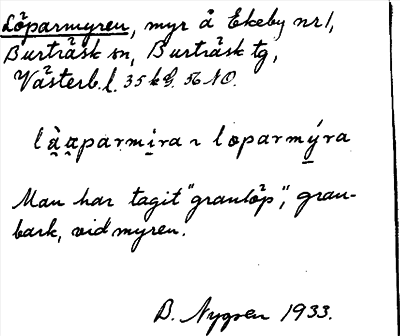 Löparmyren, myr å Ekeby nr 1,
Burträsk sn, Burträsk tg,
Västerb. l. 35 kbl. 56 NO.
lḁ̀ḁparmi̠ra ~ loparmý̠ra
Man har tagit "granlöp", gran-
bark, vid myren.
B. Nygren 1933.